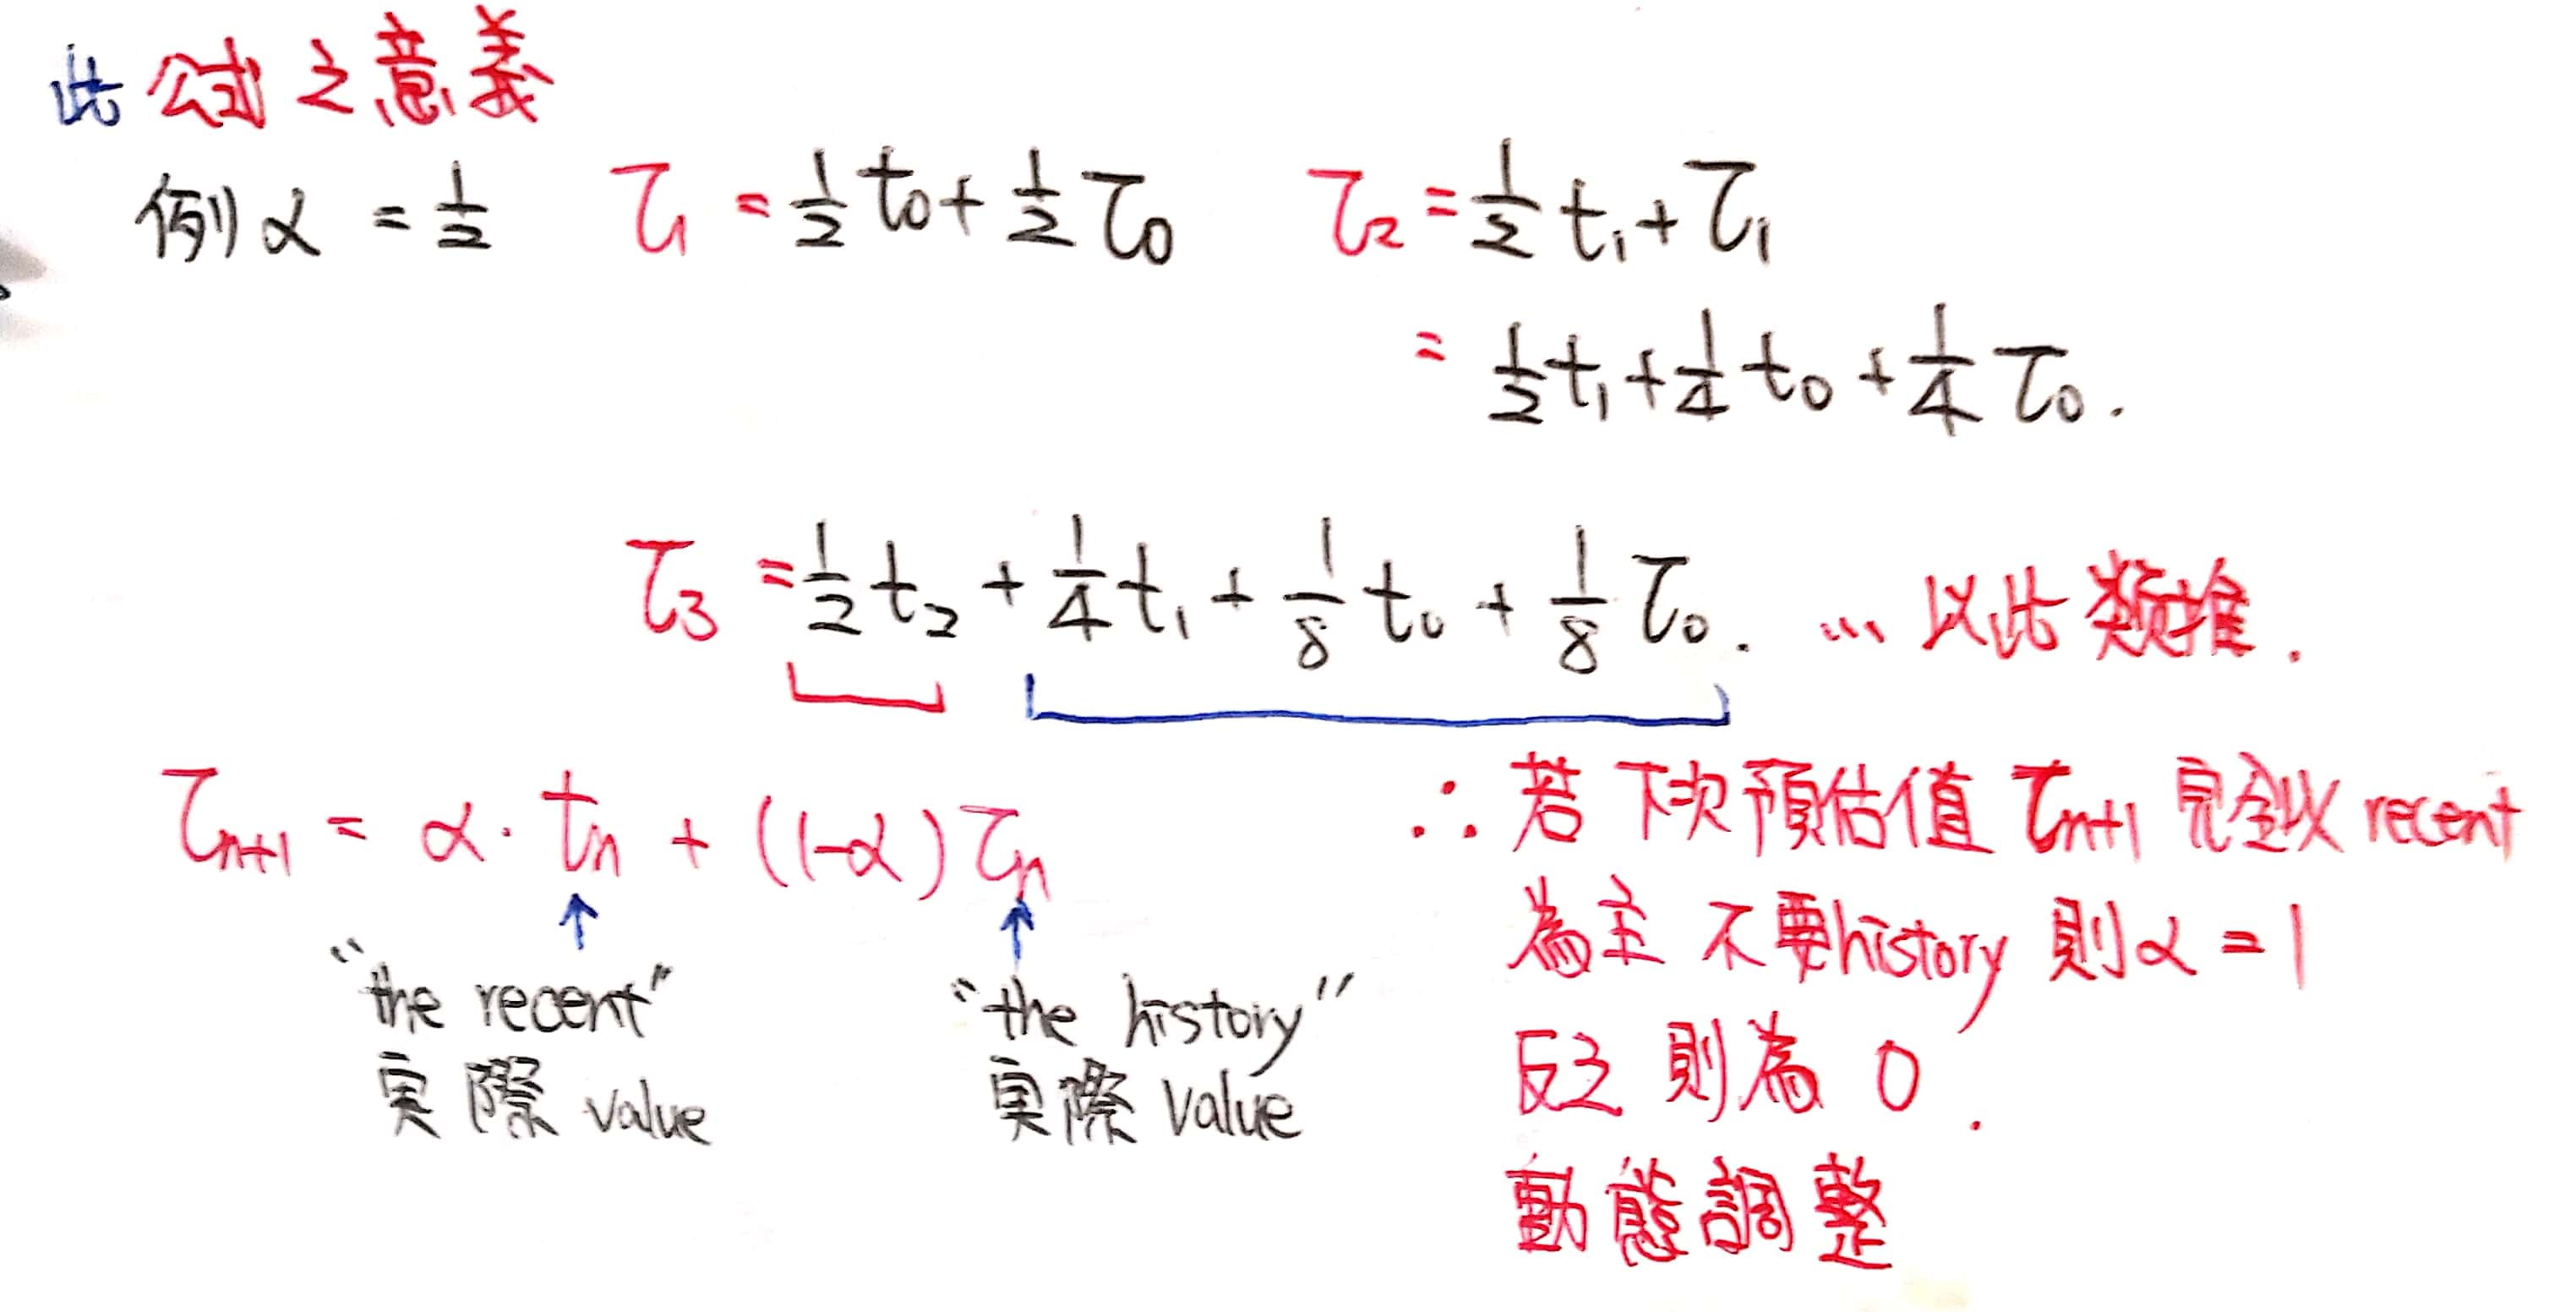 此公式之意義
例 α = 1/2 τ₁ = 1/2 t₀ + 1/2 τ₀ τ₂ = 1/2 t₁ + τ₁
= 1/2 t₁ + 1/4 t₀ + 1/4 τ₀.
τ₃ = 1/2 t₂ + 1/4 t₁ + 1/8 t₀ + 1/8 τ₀. ... 以此類推.
τₙ₊₁ = α · tₙ + (1-α) τₙ
"the recent"
実際 value
"the history"
実際 value
∴ 若下次預估值 τₙ₊₁ 完全以 recent
為主 不要history 則 α = 1
反之 則為 0.
動態調整